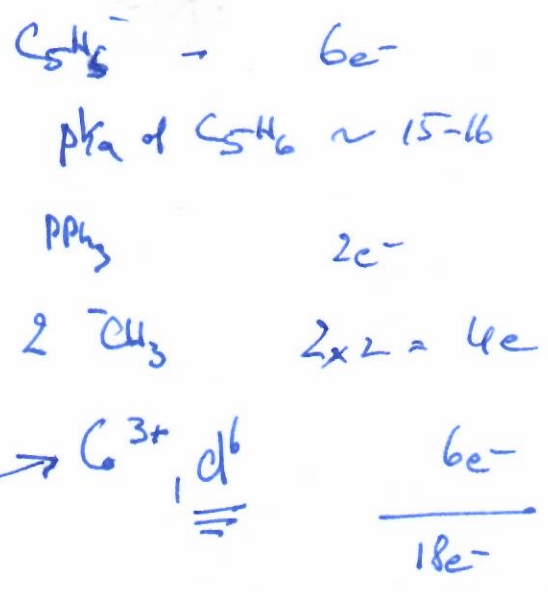 C₅H₅⁻ - 6e⁻
pKa of C₅H₆ ~ 15-16
PPh₃ 2e⁻
2 ⁻CH₃ 2×2 = 4e
→ Co³⁺, d⁶ 6e⁻
18e⁻